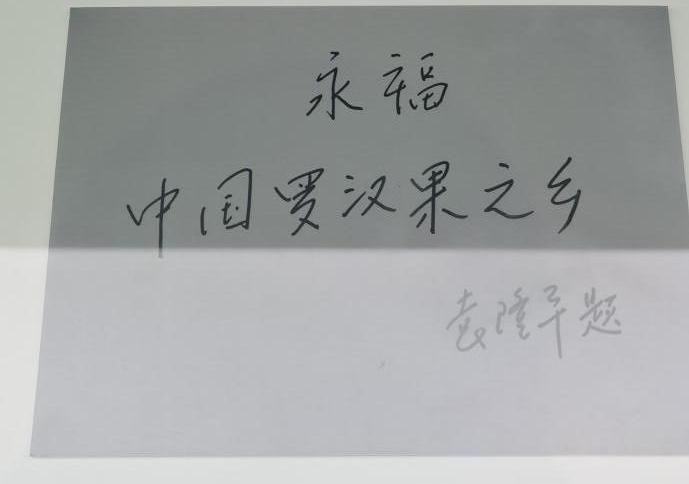 永福
中国罗汉果之乡
袁隆平题